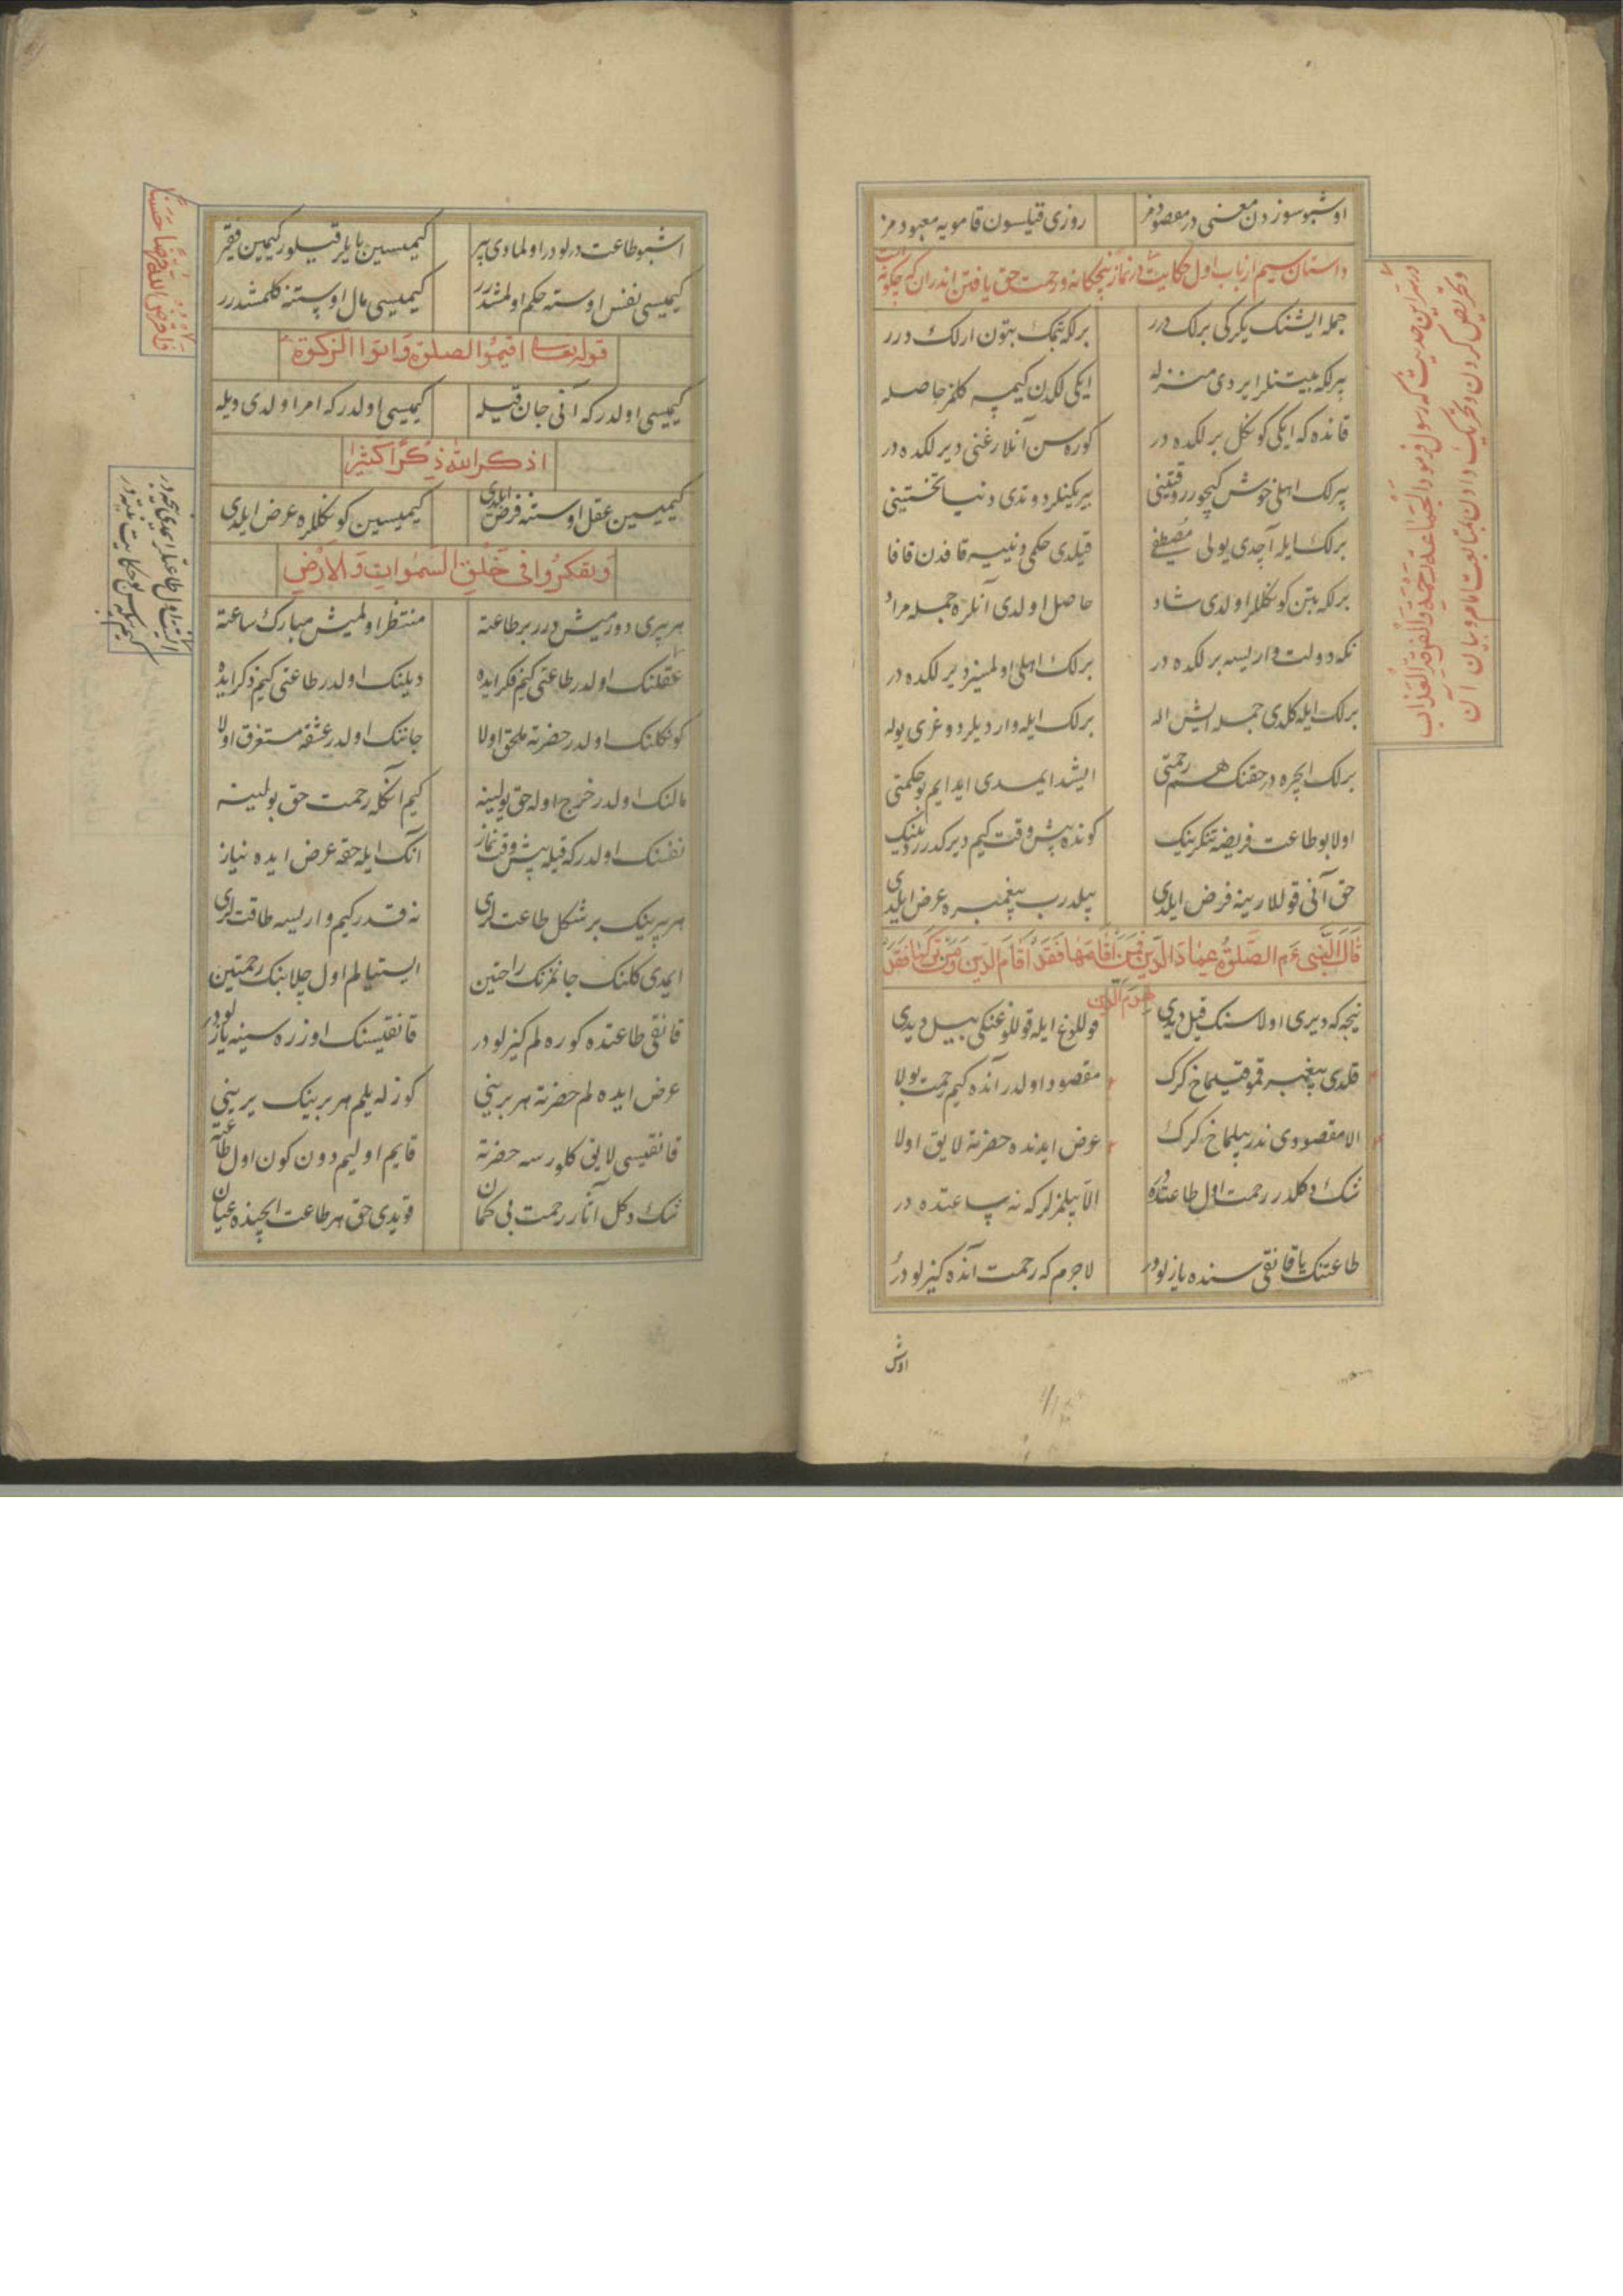 اوشبو سوزدن معنی در مقصودمز روزی قیلسون قامویه معبودمز
داستان سیم از باب اول حکایت در نماز پنجکانه و رحمت حق یافتن اندران که چکونه است
جمله ایشنک یکرکی برلک درر برلکه یتمک بتون ارلک درر
بیرلکه بیتنلر ایردی منزله ایکی لکدن کیمسه کلمز حاصله
قانده که ایکی کونکل برلکده در کوره سن آنلارغنی دیرلکده در
بیرلک اهلی خوش کیچورر وقتینی بیریکینلر دوتدی دنیا تختینی
برلک ایله آچدی یولی مصطفی قیلدی حکمی دنییه قافدن قافا
برلکه بیتن کونکللر اولدی شاد حاصل اولدی آنلره جمله مراد
نکه دولت وار یسه برلکده در برلک اهلی اولمیز دیرلکده در
برلک ایله کلدی جمله ایش اله برلک ایله واردیلر دوغری یوله
برلک ایچره در حقنک هم رحمتی ایشد ایمدی ایدایم بو حکمتی
اولا بو طاعت فریضه تنکرینک کونده پیش وقت کیم دیر کدر
حق آنی قوللارینه فرض ایلدی بیلدرب پیغمبره عرض ایلدی
قال النبی عم الصلوة عماد الدین فمن اقامها فقد اقام الدین ومن ترکها فقد
هدم الدین
نیجه که دیری اولاسنک قیل دیدی قوللوغ ایله قوللوغنکی بیل دیدی
قلدی پیغمبر قمو قیلماخ کرک مقصود اولدر آنده کیم رحمت بولا
الا مقصودی ندر بیلماخ کرک عرض ایدنده حضرته لایق اولا
شک دکلدر رحمت اول طاعتده در الا بیلمزلر که نه ساعتده در
طاعتنک یا قانقی سنده یازلودر لاجرم که رحمت آنده کیزلودر
اوش
در سر این حدیث که رسول فرمود الجماعة رحمة والفرقة العذاب
وتحریص کردن وتحریک دادن بمتابعت امام وبیان آن
اشبو طاعت درلودر اولمادی بیر کیمیسین بایلر قیلور کیمین فقیر
کیمیسی نفس اوسته حکم اولمشدرر کیمیسی مال اوستنه کلمشدرر
قوله تعالی اقیموا الصلوة واتوا الزکوة
کیمیسی اولدر که آنی جان قیله کیمیسی اولدر که امر اولدی دیله
اذکر الله ذکرا کثیرا
کیمیسین عقل اوسته فرض ایلدی کیمیسین کونکللره عرض ایلدی
ویتفکروا فی خلق السموات والارض
هر بیری دورمیش درر بر طاعته منتظر اولمیش مبارک ساعته
عقلنک اولدر طاعتی کیم فکر ایده دیلنک اولدر طاعتی کیم ذکر ایده
کونکلنک اولدر حضرته ملحق اولا جاننک اولدر عشقه مستغرق اولا
مالنک اولدر خرج اوله حق یولینه کیم انکله رحمت حق بولینه
نفسنک اولدر که قیله پیش وقت نماز انک ایله حقه عرض ایده نیاز
هر بیرینک بر شکل طاعتلری نه قدر کیم وار لیسه طاقتلری
ایمدی کلنک جانمزنک راحتین ایستیالم اول چلابنک رحمتین
قانقی طاعتده کوره لم کیزلودر قانقیسنک اوزره سینه یازلودر
عرض ایده لم حضرته هر برینی کوزله یلم هر برینک یرینی
قانقیسی لایق کلورسه حضرته قایم اولیم دون کون اول طاعته
شک دکل آنار رحمت بی کمان قویدی حق هر طاعت ایچینده عیان
واقرضوا الله قرضا حسنا